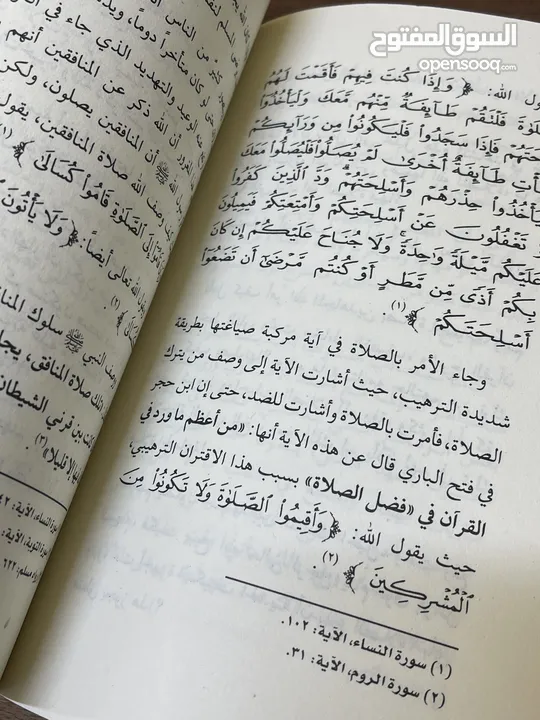 السوق المفتوح
opensooq.com
ول الله: ﴿ وَإِذَا كُنتَ فِيهِمْ فَأَقَمْتَ لَهُمُ
فَلْتَقُمْ طَآئِفَةٌ مِّنْهُم مَّعَكَ وَلْيَأْخُذُوٓا۟
فَإِذَا سَجَدُوا۟ فَلْيَكُونُوا۟ مِن وَرَآئِكُمْ
طَآئِفَةٌ أُخْرَىٰ لَمْ يُصَلُّوا۟ فَلْيُصَلُّوا۟ مَعَكَ
حِذْرَهُمْ وَأَسْلِحَتَهُمْ ۗ وَدَّ ٱلَّذِينَ كَفَرُوا۟
تَغْفُلُونَ عَنْ أَسْلِحَتِكُمْ وَأَمْتِعَتِكُمْ فَيَمِيلُونَ
عَلَيْكُم مَّيْلَةً وَٰحِدَةً ۚ وَلَا جُنَاحَ عَلَيْكُمْ إِن كَانَ
بِكُمْ أَذًى مِّن مَّطَرٍ أَوْ كُنتُم مَّرْضَىٰٓ أَن تَضَعُوٓا۟
أَسْلِحَتَكُمْ ﴾(١).
وجاء الأمر بالصلاة في آية مركبة صياغتها بطريقة
شديدة الترهيب، حيث أشارت الآية إلى وصف من يترك
الصلاة، فأمرت بالصلاة وأشارت للضد، حتى إن ابن حجر
في فتح الباري قال عن هذه الآية أنها: «من أعظم ما ورد في
القرآن في «فضل الصلاة» بسبب هذا الاقتران الترهيبي،
حيث يقول الله: ﴿ وَأَقِيمُوا۟ ٱلصَّلَوٰةَ وَلَا تَكُونُوا۟ مِنَ
ٱلْمُشْرِكِينَ ﴾(٢).
(١) سورة النساء، الآية: ١٠٢.
(٢) سورة الروم، الآية: ٣١.
من الناس
كان متأخراً دوماً،
الوعيد والتهديد الذي جاء في
أن الله ذكر عن المنافقين أنهم
أن المنافقين يصلون، ولكن
وصف الله صلاة المنافقين، يقول
إِلَى ٱلصَّلَوٰةِ قَامُوا۟ كُسَالَىٰ ﴾(١)
الله تعالى أيضاً: ﴿ وَلَا يَأْتُونَ
النبي ﷺ سلوك
صلاة المنافق،
بين قرني الشيطان
إلا قليلاً»(٣)
سورة النساء، الآية:
سورة التوبة، الآية:
مسلم: ٦٢٢